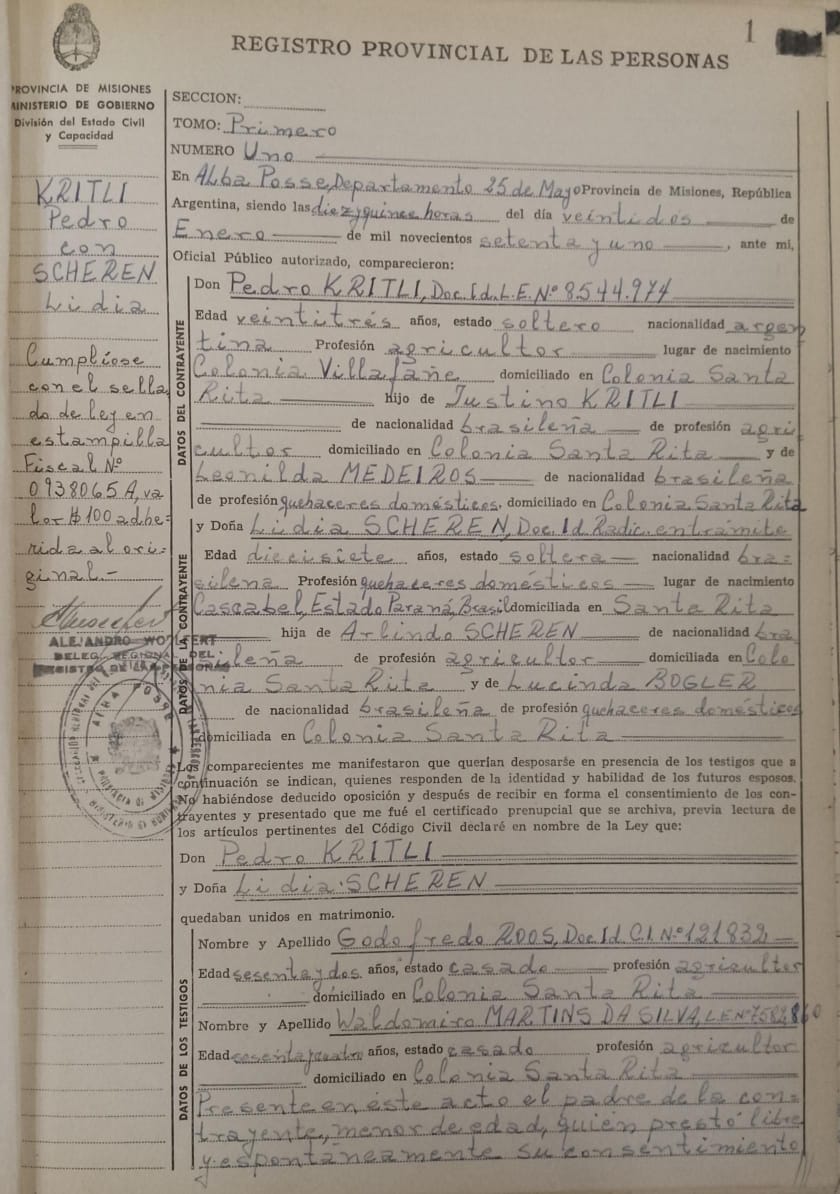 1
REGISTRO PROVINCIAL DE LAS PERSONAS
PROVINCIA DE MISIONES
MINISTERIO DE GOBIERNO
División del Estado Civil
y Capacidad
KRITLI
Pedro
con
SCHEREN
Lidia
Cumplióse
con el sella
do de ley en
estampilla
Fiscal Nº
0938065 A, va
lor $ 100 adhe=
rida al ori=
ginal.-
ALEJANDRO
DELEG. REGIONAL DEL
REGISTRO DE LAS PERSONAS
ALBA POSSE
SECCION:
TOMO: Primero
NUMERO Uno
En Alba Posse, Departamento 25 de Mayo Provincia de Misiones, República
Argentina, siendo las diez y quince horas del día veintidos de
Enero de mil novecientos setenta y uno, ante mi,
Oficial Público autorizado, comparecieron:
DATOS DEL CONTRAYENTE
Don Pedro KRITLI, Doc. Id. L.E. Nº 8.544.974
Edad veintitrés años, estado soltero nacionalidad argen
tina Profesión agricultor lugar de nacimiento
Colonia Villafañe domiciliado en Colonia Santa
Rita hijo de Justino KRITLI
de nacionalidad brasileña de profesión agri
cultor domiciliado en Colonia Santa Rita y de
Leonilda MEDEIROS de nacionalidad brasileña
de profesión quehaceres domésticos, domiciliado en Colonia Santa Rita
DATOS DE LA CONTRAYENTE
y Doña Lidia SCHEREN, Doc. Id. Radic. en trámite
Edad diecisiete años, estado soltera nacionalidad bra=
sileña Profesión quehaceres domésticos lugar de nacimiento
Cascabel, Estado Paraná, Brasil domiciliada en Santa Rita
hija de Arlindo SCHEREN de nacionalidad bra
sileña de profesión agricultor domiciliada en Colo
nia Santa Rita y de Lucinda BOGLER
de nacionalidad brasileña de profesión quehaceres domésticos
domiciliada en Colonia Santa Rita
Los comparecientes me manifestaron que querían desposarse en presencia de los testigos que a
continuación se indican, quienes responden de la identidad y habilidad de los futuros esposos.
No habiéndose deducido oposición y después de recibir en forma el consentimiento de los con-
trayentes y presentado que me fué el certificado prenupcial que se archiva, previa lectura de
los artículos pertinentes del Código Civil declaré en nombre de la Ley que:
Don Pedro KRITLI
y Doña Lidia SCHEREN
quedaban unidos en matrimonio.
DATOS DE LOS TESTIGOS
Nombre y Apellido Godofredo ROOS, Doc. Id. C.I. Nº 121832
Edad sesenta y dos años, estado casado profesión agricultor
domiciliado en Colonia Santa Rita
Nombre y Apellido Waldomiro MARTINS DA SILVA, L.E. Nº
Edad sesenta y cuatro años, estado casado profesión agricultor
domiciliado en Colonia Santa Rita
Presente en éste acto el padre de la con=
trayente, menor de edad, quien prestó libre
y espontáneamente su consentimiento